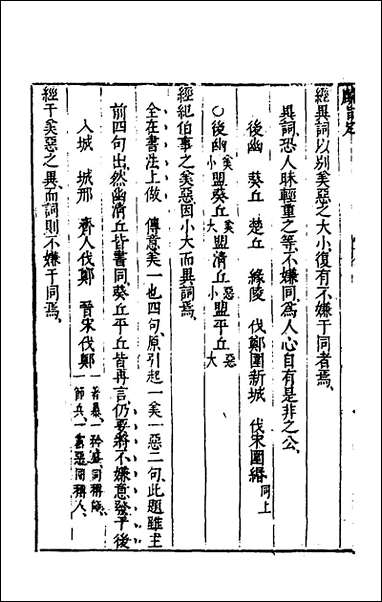 經異詞以別美惡之大小復有不嫌于同者焉
異詞恐人昧輕重之等不嫌同為人心自有是非之公
後幽 葵丘 楚丘 緣陵 伐鄭圍新城 伐宋圍緡 同上
○後幽 美小 盟葵丘 美大 盟清丘 惡小 盟平丘 惡大
經紀伯事之美惡因小大而異詞焉
全在書法上做 傳意美一也四句原引起一美一惡二句此題雖主
前四句出然幽清丘皆書同葵丘平丘皆再言仍要將不嫌意發于後
入城 城邢 齊人伐鄭 晉宋伐鄭
節兵
經于美惡之異而詞則不嫌于同焉